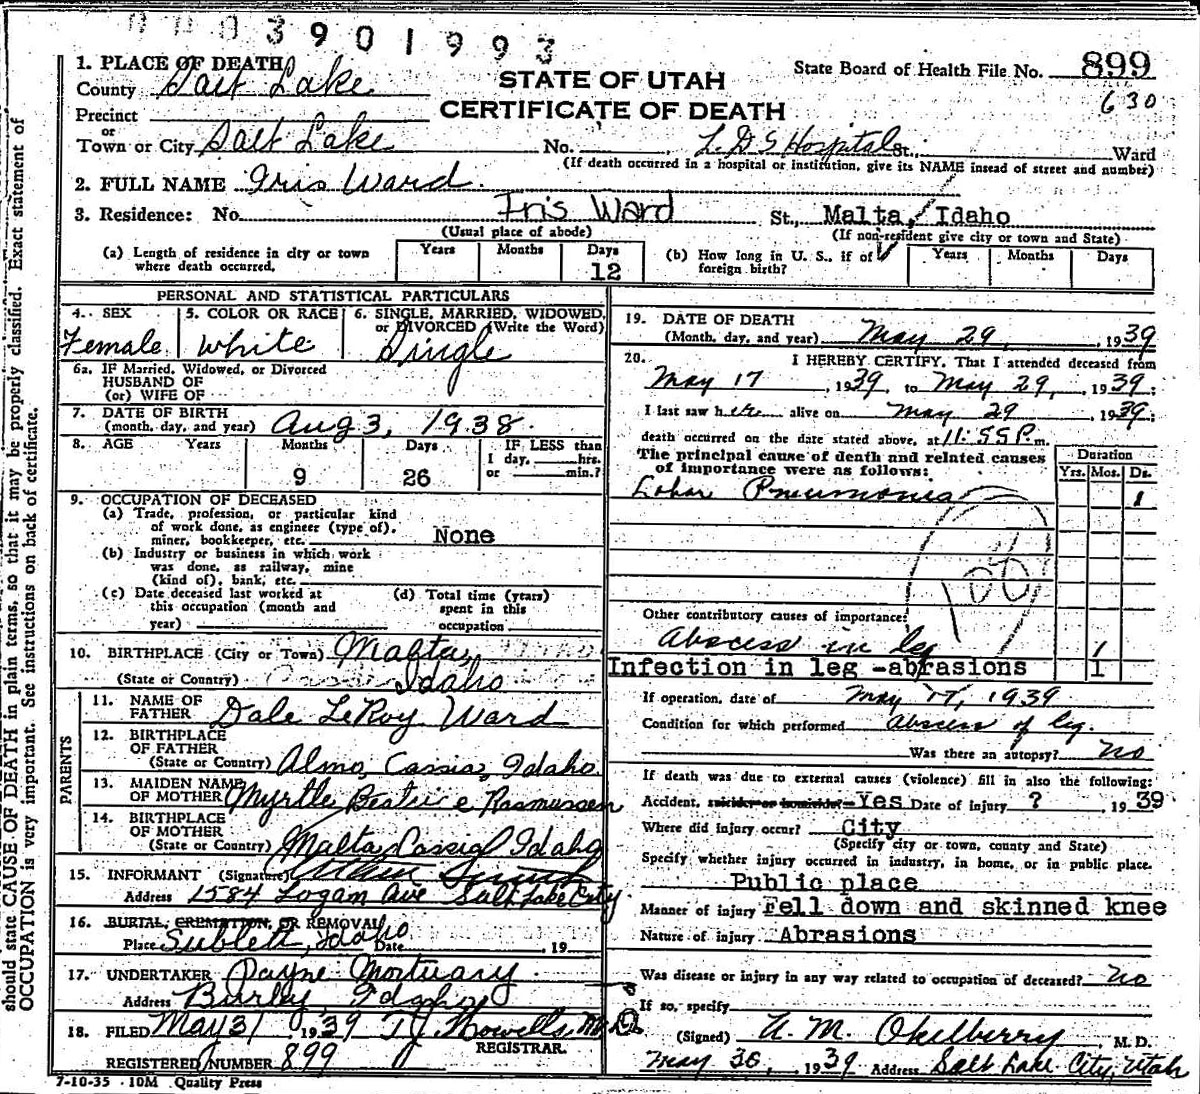 3901993
1. PLACE OF DEATH
County Salt Lake
Precinct
or
Town or City Salt Lake No. L.D.S Hospital St., Ward
STATE OF UTAH
CERTIFICATE OF DEATH
State Board of Health File No. 899
630
(If death occurred in a hospital or institution, give its NAME insead of street and number)
2. FULL NAME Iris Ward.
3. Residence: No. Iris Ward St., Malta, Idaho
(Usual place of abode) (If non-resident give city or town and State)
(a) Length of residence in city or town where death occurred. Years Months Days 12
(b) How long in U. S., if of foreign birth? Years Months Days
PERSONAL AND STATISTICAL PARTICULARS
4. SEX Female
5. COLOR OR RACE White
6. SINGLE, MARRIED, WIDOWED, or DIVORCED (Write the Word) Single
6a. IF Married, Widowed, or Divorced
HUSBAND OF
(or) WIFE OF
7. DATE OF BIRTH
(month, day, and year) Aug 3, 1938.
8. AGE Years Months 9 Days 26 IF LESS than 1 day, hrs. or min.?
9. OCCUPATION OF DECEASED
(a) Trade, profession, or particular kind
of work done, as engineer (type of),
miner, bookkeeper, etc. None
(b) Industry or business in which work
was done, as railway, mine
(kind of), bank, etc.
(c) Date deceased last worked at
this occupation (month and
year)
(d) Total time (years)
spent in this
occupation
10. BIRTHPLACE (City or Town) Malta,
(State or Country) Cassia Idaho
PARENTS
11. NAME OF
FATHER Dale LeRoy Ward
12. BIRTHPLACE
OF FATHER
(State or Country) Almo, Cassia, Idaho.
13. MAIDEN NAME
OF MOTHER Myrtle Beatrice Rasmussen
14. BIRTHPLACE
OF MOTHER
(State or Country) Malta Cassia Idaho
15. INFORMANT (Signature)
Address 1584 Logan Ave Salt Lake City
16. BURIAL, CREMATION, OR REMOVAL
Place Sublett, Idaho Date , 19
17. UNDERTAKER Payne Mortuary
Address Burley, Idaho
18. FILED May 31 1939 T.J. Howells, M.D.
REGISTRAR.
REGISTERED NUMBER 899
7-10-35 - 10M Quality Press
19. DATE OF DEATH
(Month, day, and year) May 29, , 1939
20. I HEREBY CERTIFY, That I attended deceased from
May 17 , 1939, to May 29, , 1939;
I last saw her alive on May 29 , 1939;
death occurred on the date stated above, at 11:55 P.m.
The principal cause of death and related causes
of importance were as follows:
Duration
Yrs. Mos. Ds.
Lobar Pneumonia 1
Other contributory causes of importance:
Abscess in leg 1
Infection in leg -abrasions 1
If operation, date of May 17, 1939
Condition for which performed abscess of leg.
Was there an autopsy? no
If death was due to external causes (violence) fill in also the following:
Accident, suicide or homicide? Yes Date of injury ? , 1939
Where did injury occur? City
(Specify city or town, county and State)
Specify whether injury occurred in industry, in home, or in public place.
Public place
Manner of injury Fell down and skinned knee
Nature of injury Abrasions
Was disease or injury in any way related to occupation of deceased? no
If so, specify
(Signed) A. M. Okelberry, M. D.
May 30, , 1939 Address Salt Lake City, Utah
should state CAUSE OF DEATH in plain terms, so that it may be properly classified. Exact statement of
OCCUPATION is very important. See instructions on back of certificate.